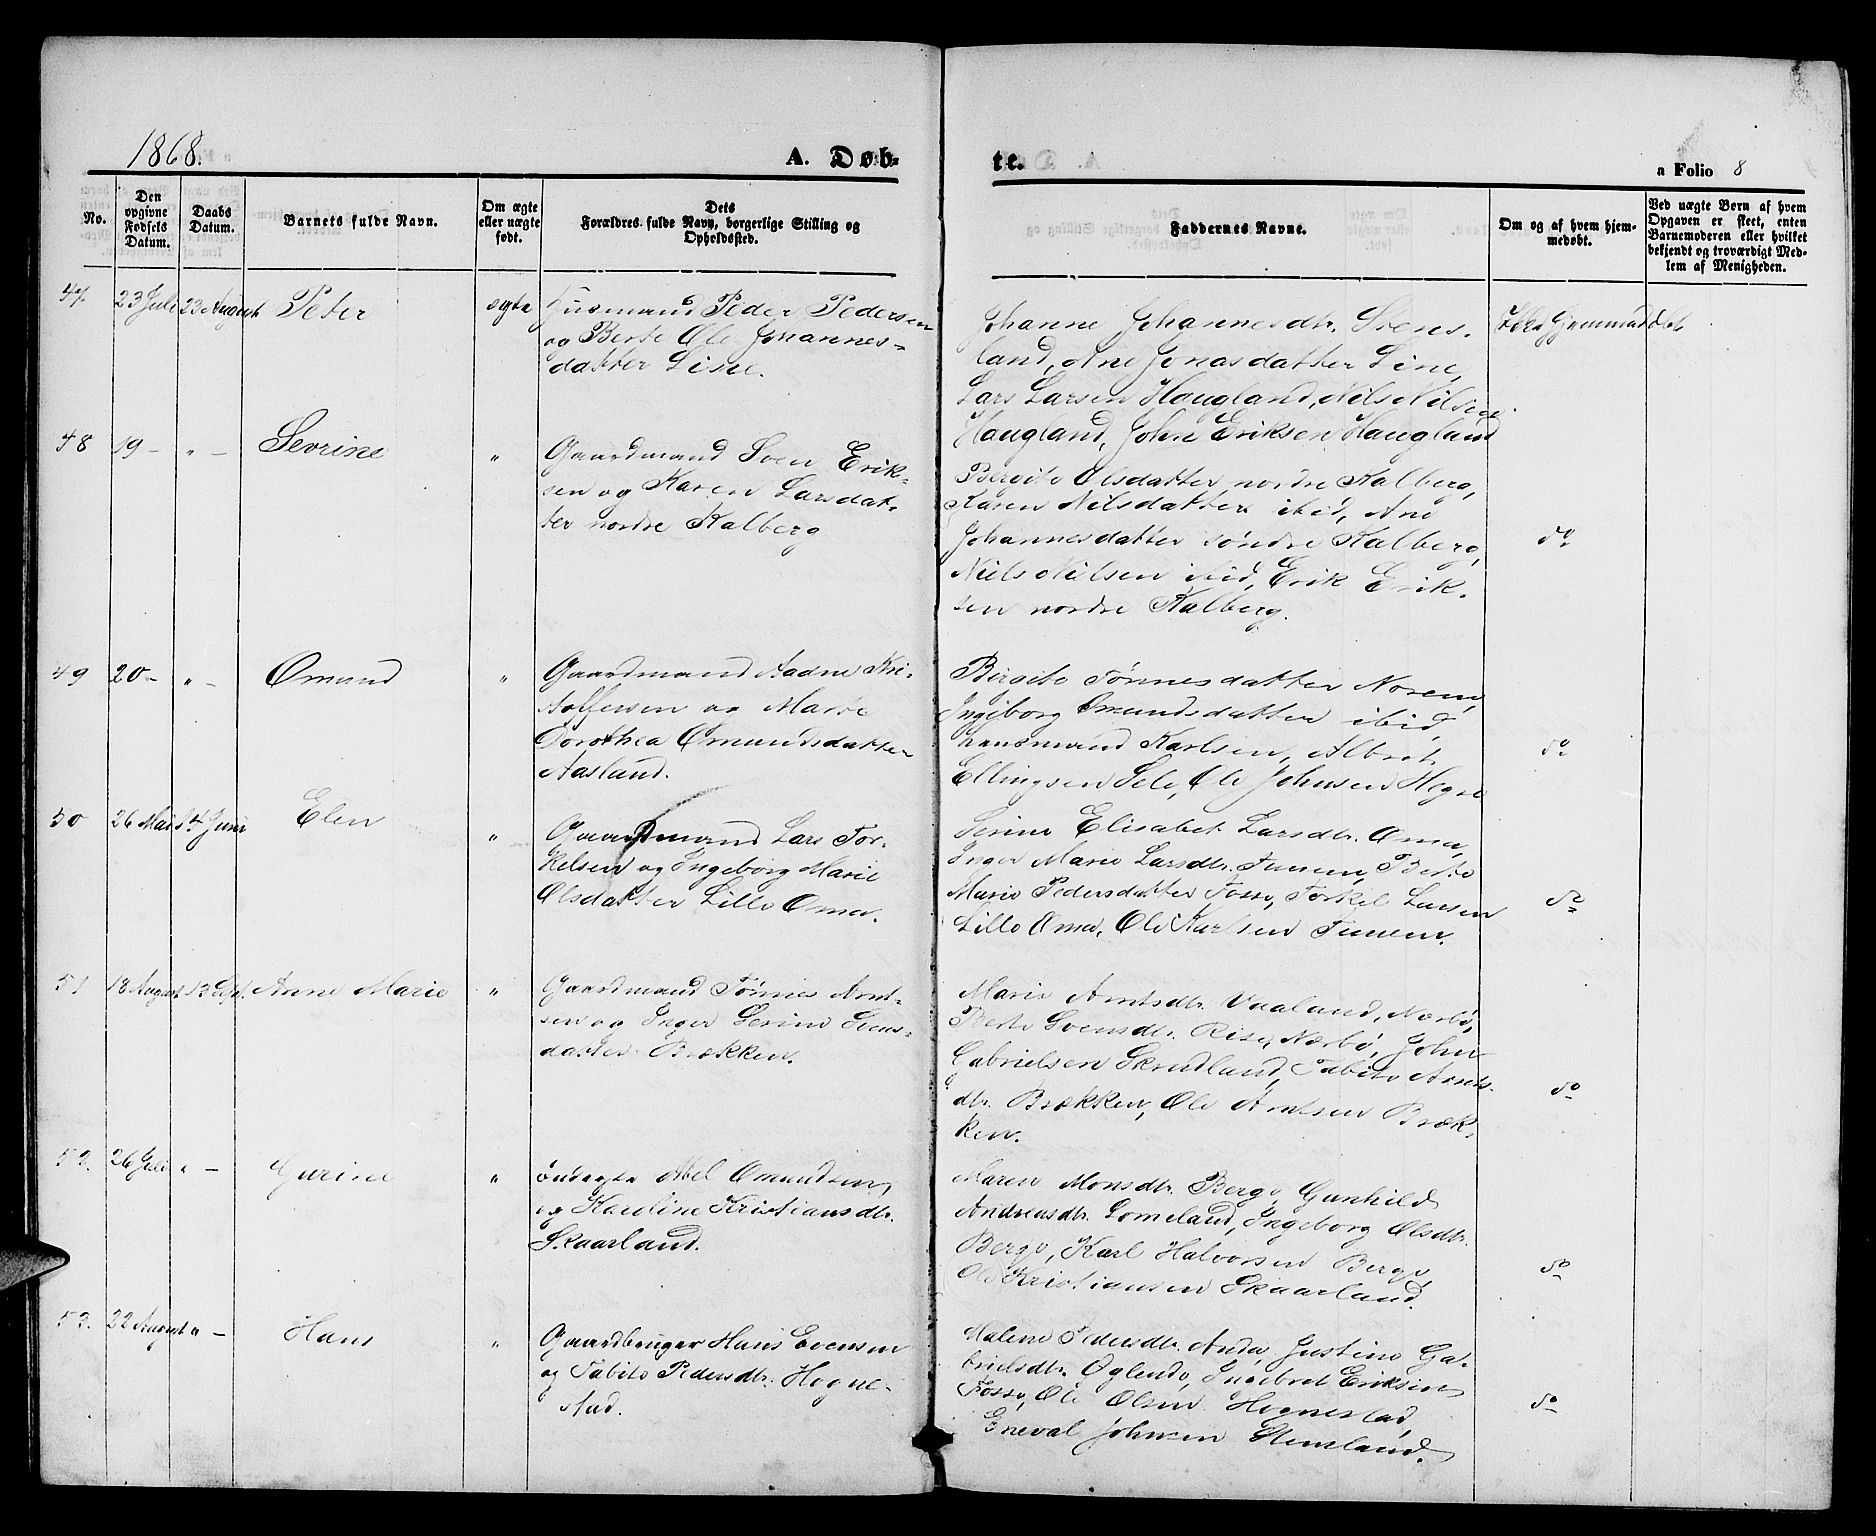 1868.
A. Døb-
te.
a Folio 8
No.
Den opgivne Fødsels Datum.
Daabs Datum.
Barnets fulde Navn.
Om ægte eller uægte født.
Dets Forældres fulde Navn, borgerlige Stilling og Opholdssted.
Faddernes Navne.
Om og af hvem hjemmedøbt.
Ved uægte Børn af hvem Opgaven er skeet, enten Barnemoderen eller hvilket bekjendt og troværdigt Medlem af Menigheden.
47. 23 Juli 23 August Peter ægte
Husmand Peder Pedersen
og Berte Ole Johannes-
datter Line.
Johanne Johannesdtr. Stens-
land, Ane Jonasdatter Line,
Lars Larsen Haugland, Nils Nilsen
Haugland, John Eriksen Haugland
48 19 – " – Sevrine "
Gaardmand Sven Erik-
sen og Karen Larsdat-
ter nordre Kalberg
Bergite Olsdatter nordre Kalberg,
Karen Nilsdatter ibid, Ane
Johannesdatter søndre Kalberg,
Niels Nilsen ibid, Erik Erik-
sen nordre Kalberg.
do
49 20 – " – Omund "
Gaardmand Aadne Kri-
stoffersen og Marte
Dorothea Omundsdatter
Aasland.
Birgite Tønnesdatter Norem,
Ingeborg Omundsdatter ibid,
Lensmand Karlsen, Albret
Ellingsen Sele, Ole Johnsen Hegre
do
50 26 Mai Juni Elen "
Gaardmand Lars Tor-
kelsen og Ingeborg Marie
Olsdatter Lille Oma.
Serine Elisabet Larsdtr. Oma,
Inger Marie Larsdtr. Tunem, Berte
Marie Pedersdatter Fosse, Torkel Larsen
Lille Oma, Ole Karlsen Tunem.
do
51 18 August 13 Sept. Anne Marie "
Gaardmand Tønnes Arnt-
sen og Inger Serine Svens-
datter Brækken.
Marie Arntsdtr. Vaaland, Nærbø,
Berte Svensdtr. Rise, Nærbø, John
Gabrielsen Skrudland, Tabite Arnts-
dtr. Brækken, Ole Arntsen Bræk-
ken.
do
52. 26 Juli " – Gurine "
Inderste Abel Omundsen,
og Karoline Kristiansdtr.
Skaarland.
Maren Monsdtr. Berge, Gunhild
Andreasdtr. Lomeland, Ingeborg Olsdtr.
Berge, Karl Halvorsen Berge,
Ole Kristiansen Skaarland.
do
53. 22 August " – Hans "
Gaardbruger Hans Evensen
og Tabite Pedersdtr. Hogne-
stad.
Malene Pedersdtr. Anda, Justine Ga-
brielsdtr. Oglende, Ingebret Eriksen
Fosse, Ole Olsen Hognestad,
Eneval Johnsen Stensland.
do